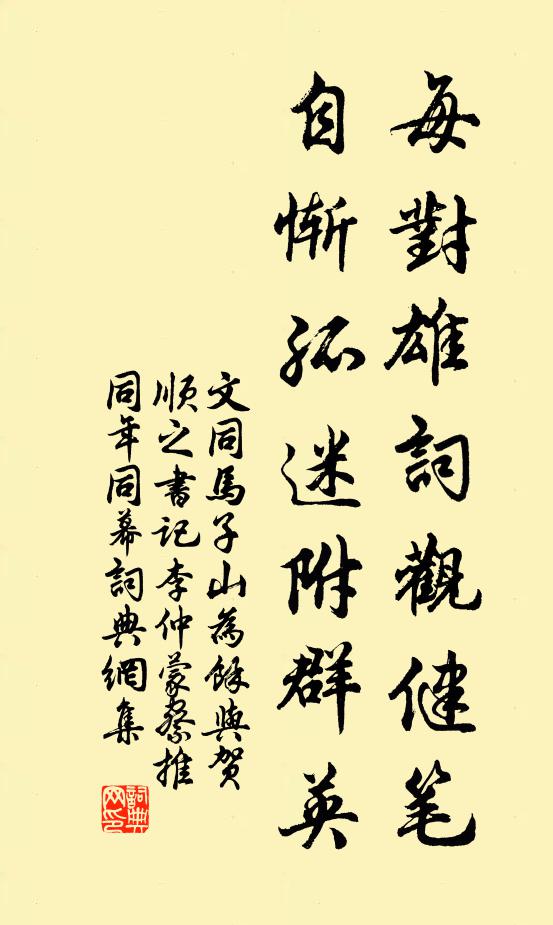 每對雄詞觀健笔
自慚孤迷附群英
文同馬子山為餘與賀
順之書記李仲蒙察推
同年同幕詞典網集
詞典
网印